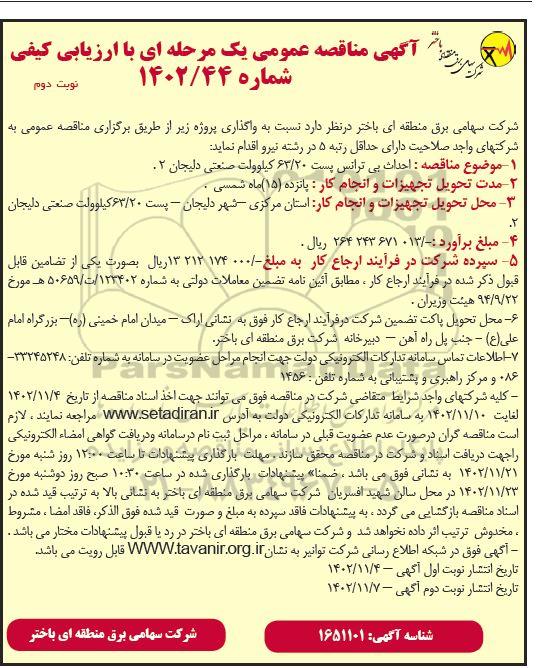 آگهی مناقصه عمومی یک مرحله ای با ارزیابی کیفی
شماره ۱۴۰۲/۴۴
نوبت دوم
شرکت سهامی برق منطقه ای باختر
شرکت سهامی برق منطقه ای باختر درنظر دارد نسبت به واگذاری پروژه زیر از طریق برگزاری مناقصه عمومی به
شرکتهای واجد صلاحیت دارای حداقل رتبه ۵ در رشته نیرو اقدام نماید:
۱-موضوع مناقصه : احداث بی ترانس پست ۶۳/۲۰ کیلوولت صنعتی دلیجان ۲ .
۲-مدت تحویل تجهیزات و انجام کار : پانزده (۱۵)ماه شمسی .
۳- محل تحویل تجهیزات و انجام کار: استان مرکزی –شهر دلیجان – پست ۶۳/۲۰کیلوولت صنعتی دلیجان
۲.
۴- مبلغ برآورد :-/۰۱۳ ۶۷۱ ۲۴۳ ۲۶۴ ریال .
۵- سپرده شرکت در فرآیند ارجاع کار به مبلغ-/۰۰۰ ۱۷۴ ۲۱۲ ۱۳ریال بصورت یکی از تضامین قابل
قبول ذکر شده در فرآیند ارجاع کار ، مطابق آئین نامه تضمین معاملات دولتی به شماره ۱۲۳۴۰۲/ت۵۰۶۵۹/ هـ مورخ
۹۴/۹/۲۲ هیئت وزیران .
۶- محل تحویل پاکت تضمین شرکت درفرآیند ارجاع کار فوق به نشانی اراک – میدان امام خمینی (ره)– بزرگراه امام
علی(ع) – جنب پل راه آهن – دبیرخانه شرکت برق منطقه ای باختر.
۷-اطلاعات تماس سامانه تدارکات الکترونیکی دولت جهت انجام مراحل عضویت در سامانه به شماره تلفن: ۳۳۲۴۵۲۴۸-
۰۸۶ و مرکز راهبری و پشتیبانی به شماره تلفن : ۱۴۵۶
- کلیه شرکتهای واجد شرایط متقاضی شرکت در مناقصه فوق می توانند جهت اخذ اسناد مناقصه از تاریخ ۱۴۰۲/۱۱/۴
لغایت ۱۴۰۲/۱۱/۱۰ به سامانه تدارکات الکترونیکی دولت به آدرس www.setadiran.ir مراجعه نمایند ، لازم
است مناقصه گران درصورت عدم عضویت قبلی در سامانه ، مراحل ثبت نام درسامانه ودریافت گواهی امضاء الکترونیکی
راجهت دریافت اسناد و شرکت در مناقصه محقق سازند . مهلت بارگذاری پیشنهادات تا ساعت ۱۲:۰۰ روز شنبه مورخ
۱۴۰۲/۱۱/۲۱ به نشانی فوق می باشد ، ضمنا» پیشنهادات بارگذاری شده در ساعت ۱۰:۳۰ صبح روز دوشنبه مورخ
۱۴۰۲/۱۱/۲۳ در محل سالن شهید افسریان شرکت سهامی برق منطقه ای باختر به نشانی بالا به ترتیب قید شده در
اسناد مناقصه بازگشایی می گردد ، به پیشنهادات فاقد سپرده به مبلغ و صورت قید شده فوق الذکر، فاقد امضا ، مشروط
، مخدوش ترتیب اثر داده نخواهد شد و شرکت سهامی برق منطقه ای باختر در رد یا قبول پیشنهادات مختار می باشد .
- آگهی فوق در شبکه اطلاع رسانی شرکت توانیر به نشانWWW.tavanir.org.ir قابل رویت می باشد.
تاریخ انتشار نوبت اول آگهی – ۱۴۰۲/۱۱/۴
تاریخ انتشار نوبت دوم آگهی – ۱۴۰۲/۱۱/۷
شناسه آگهی: ۱۶۵۱۱۰۱
شرکت سهامی برق منطقه ای باختر